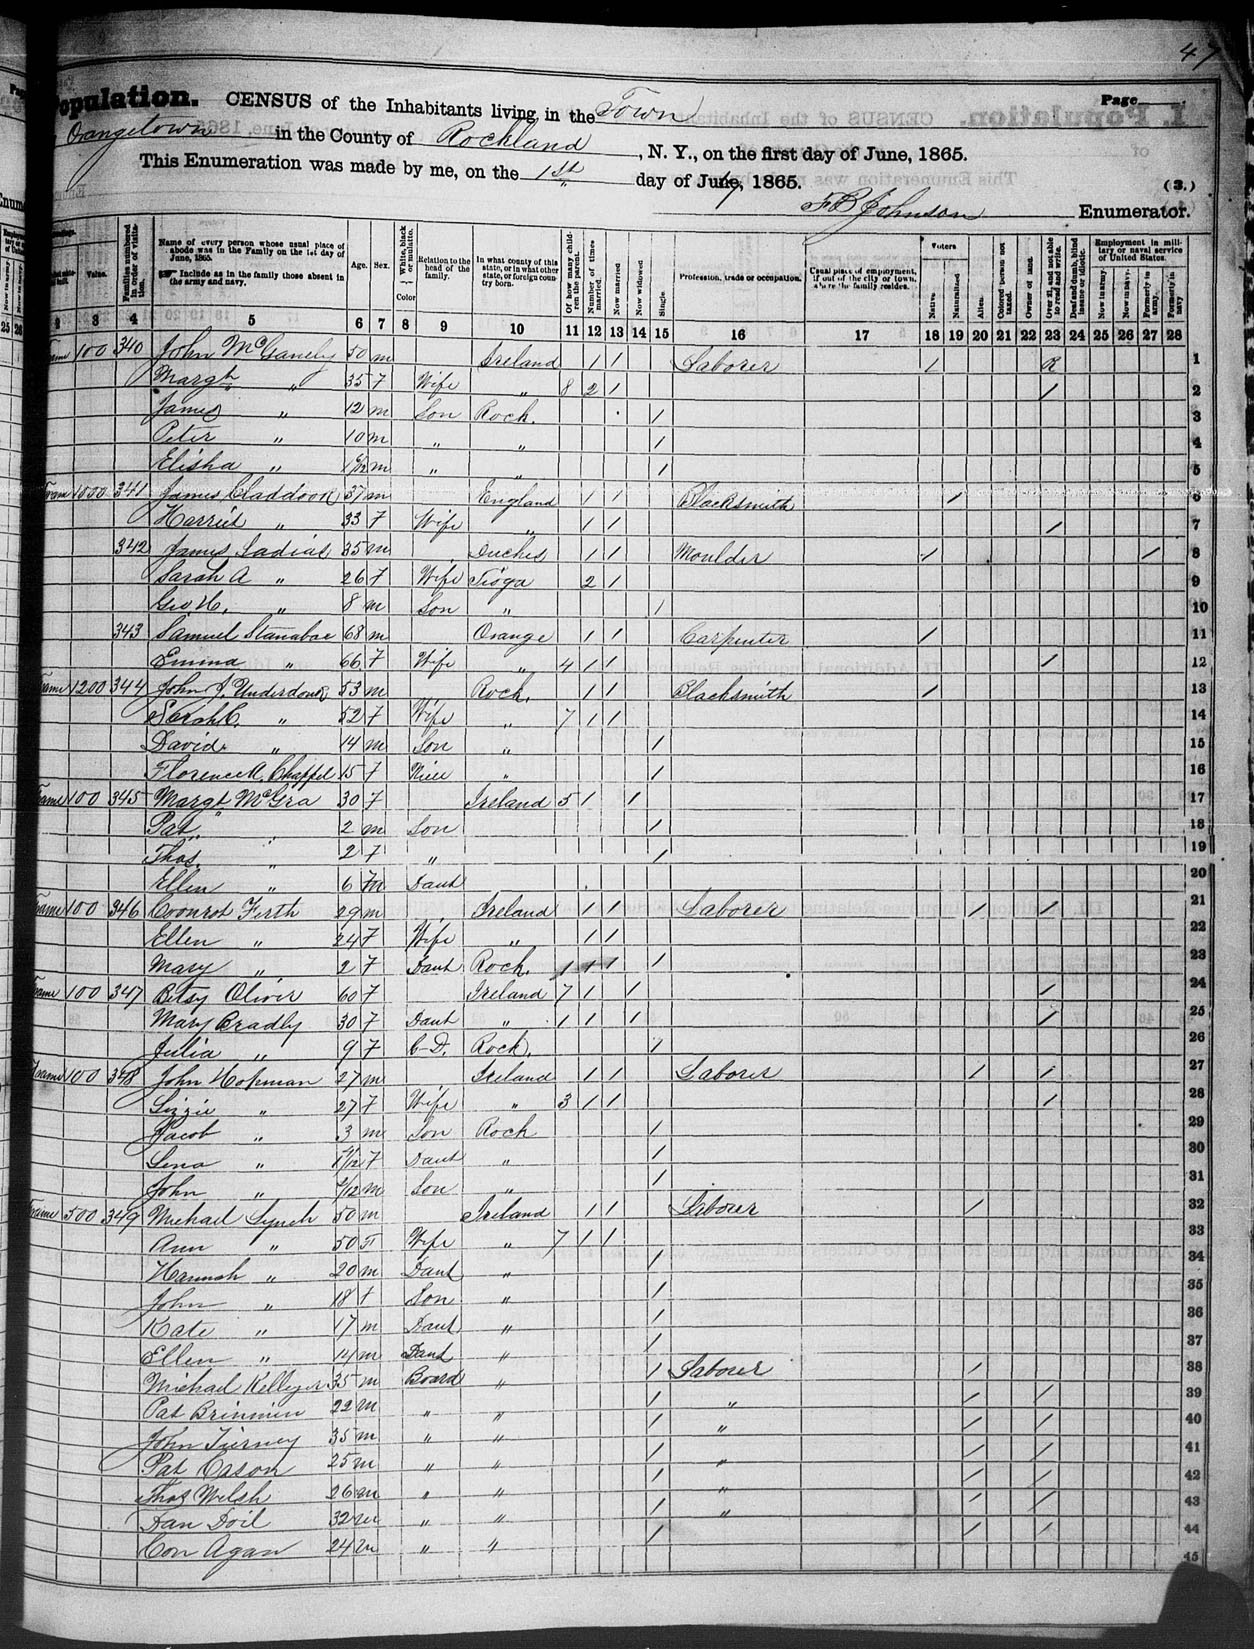 47
Population. CENSUS of the Inhabitants living in the Town Page
Orangetown in the County of Rockland, N. Y., on the first day of June, 1865.
This Enumeration was made by me, on the 1st day of June, 1865.
(3.)
F B Johnson Enumerator.
Value. Families numbered in order of visitation. Name of every person whose usual place of abode was in the Family on the 1st day of June, 1865. Include as in the family those absent in the army and navy. Age. Sex. White, black or mulatto. Color Relation to the head of the family. In what county of this state, or in what other state, or foreign country born. Of how many children the parent. Number of times married. Now married Now widowed Single. Profession, trade or occupation. Usual place of employment, if out of the city or town, where the family resides. Voters Native. Naturalized Alien. Colored person not taxed. Owner of land. Over 21, and not able to read and write. Deaf and dumb, blind insane or idiotic. Employment in military or naval service of United States. Now in army. Now in navy. Formerly in army. Formerly in navy
3 4 5 6 7 8 9 10 11 12 13 14 15 16 17 18 19 20 21 22 23 24 25 26 27 28
100 340 John 50 m Ireland 1 1 Laborer 1 1
Margt " 35 F Wife " 8 2 1 1 2
James " 12 m Son Rock. 1 3
Peter " 10 m " " 1 4
Elisha " m " " 1 5
1500 341 James Claddook 37 m England 1 1 Blacksmith 1 6
Harriet " 33 F Wife " 1 1 1 7
342 James 35 m Duches 1 1 Moulder 1 1 8
Sarah A " 26 F Wife Tioga 2 1 9
Geo H. " 8 m Son " 1 10
343 Samuel 68 m Orange 1 1 Carpenter 1 11
Emma " 66 F Wife " 4 1 1 1 12
Frame 1200 344 John J. Underdonk 53 m Rock. 1 1 Blacksmith 1 13
Sarah C. " 52 F Wife " 7 1 1 14
David " 14 m Son " 1 15
Florence A. Chappel 15 F Niece " 1 16
Frame 100 345 Margt McGra 30 F Ireland 5 1 1 17
Pat " 2 m Son 1 18
Thos. " 2 F " 1 19
Ellen " 6 m Daut 20
Frame 100 346 Coonrot Firth 29 m Ireland 1 1 Laborer 1 1 21
Ellen " 24 F Wife " 1 1 22
Mary " 2 F Daut Rock. 1 1 1 1 23
Frame 100 347 Betsy Oliver 60 F Ireland 7 1 1 1 24
Mary Bradly 30 F Daut " 1 1 1 1 25
Julia " 9 F C-D. Rock. 1 26
Frame 100 348 John Hopman 27 m Ireland 1 1 Laborer 1 1 27
Lizzie " 27 F Wife " 3 1 1 1 28
Jacob " 3 m Son Rock 1 29
Lena " F Daut " 1 30
John " m Son " 1 31
Frame 500 349 Michael Lynch 50 m Ireland 1 1 Laborer 1 32
Ann " 50 F Wife " 7 1 1 33
Hannah " 20 m Daut " 1 34
John " 18 f Son " 1 35
Kate " 17 m Daut " 1 36
Ellen " 14 m Daut " 1 37
Michael 35 m Board " 1 Laborer 1 38
Pat Brinnin 22 m " " 1 " 1 1 39
John Tierney 35 m " " 1 " 1 1 40
Pat Cason 25 m " " 1 " 1 1 41
Thos Welsh 26 m " " 1 " 1 1 42
Dan Doil 32 m " " 1 " 1 1 43
Con Agan 24 m " " 1 1 1 44
45